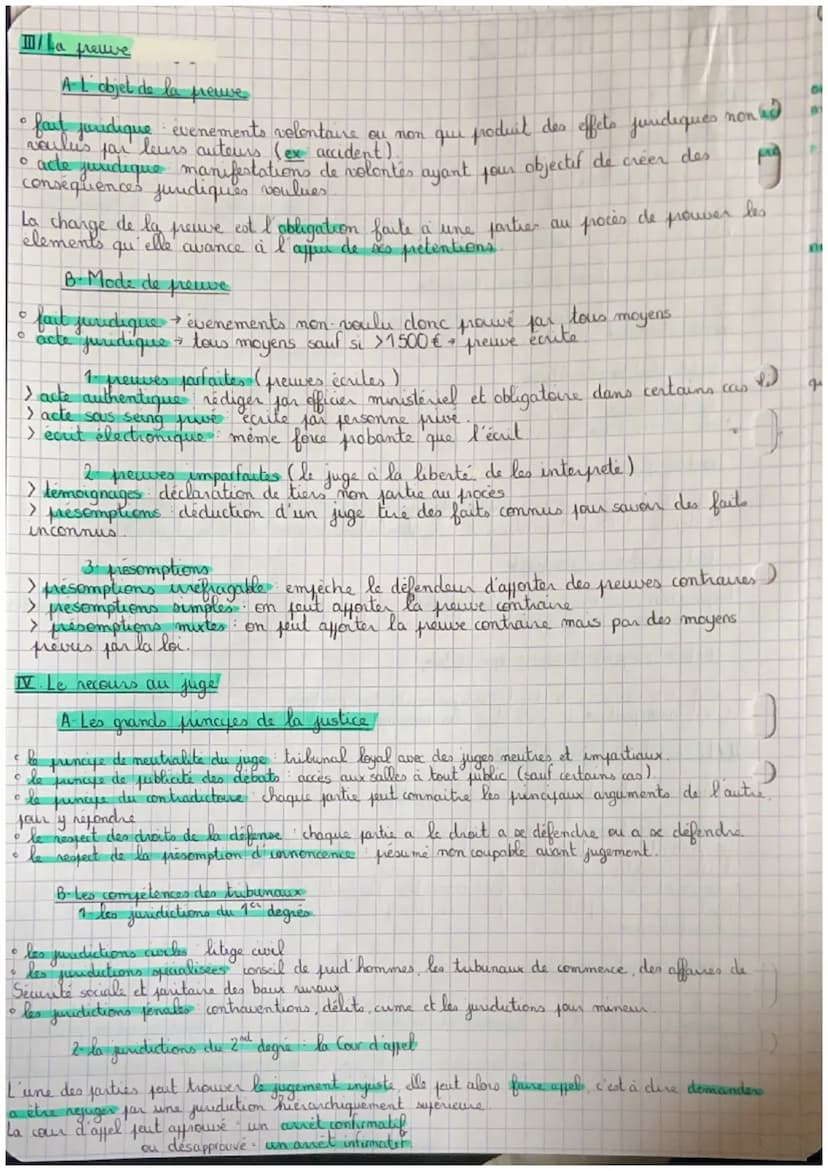 III/ La preuve
A-L'objet de la preuve
° fait juridique : évenements volontaire ou non qui produit des effets juridiques non
voulus par leurs auteurs (ex accident).
° acte juridique : manifestations de volontés ayant pour objectif de créer des
conséquences juridiques voulues.
La change de la preuve est l'obligation faite à une parties au procès de prouver les
elements qu'elle avance à l'appui de ses prétentions.
B-Mode de preuve
° fait juridique → évenements non-voulu donc prouvé par tous moyens
° acte juridique → tous moyens sauf si >1500 € → preuve écrite.
1- preuves parfaites (preuves écrites)
> acte authentique : rédiger par officier ministériel et obligatoire dans certains cas
> acte sous seing privé : écrite par personne privé.
> écrit électronique : même force probante que l'écrit
2- preuves imparfaites (le juge à la liberté de les interpreté)
> témoignages : déclaration de tiers non partie au procès
> présomptions : déduction d'un juge tiré des faits connus pour savoir des faits
inconnus.
3- présomptions
> présomptions irréfragable : empèche le défendeur d'apporter des preuves contraires
> présomptions simples : on peut apporter la preuve contraire
> présomptions mixtes : on peut apporter la preuve contraire mais par des moyens
prévus par la loi.
IV. Le recours au juge
A-Les grands principes de la justice
° le principe de neutralité du juge : tribunal loyal avec des juges neutres et impartiaux.
° le principe de publicité des débats : accès aux salles à tout public (sauf certains cas).
° le principe du contradictoire : chaque partie peut connaitre les principaux arguments de l'autre
pour y répondre
° le respect des droits de la défense : chaque partie a le droit a se défendre ou a se défendre.
° le respect de la présomption d'innoncence : présumé non coupable avant jugement.
B-Les compétences des tribunaux
1- les juridictions du 1er degrés
° les juridictions civiles : litige civil
° les juridictions spécialisées : conseil de prud'hommes, les tribunaux de commerce, des affaires de
Sécurité sociale et paritaire des baux ruraux
° les juridictions pénales : contraventions, délits, crime et les juridictions pour mineur.
2- la juridictions du 2nd degré : la Cour d'appel
L'une des parties peut trouver le jugement injuste, elle peut alors faire appel, c'est à dire demander
a être rejuger par une juridiction hiérarchiquement supérieure.
La cour d'appel peut approuvé : un arrêt confirmatif
ou désapprouvé : un arrêt infirmatif.